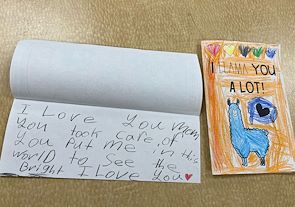 I Love You Mom
You took care of
You Put me in this
World to See the
Bright I Love You
I LLAMA YOU
A LOT!